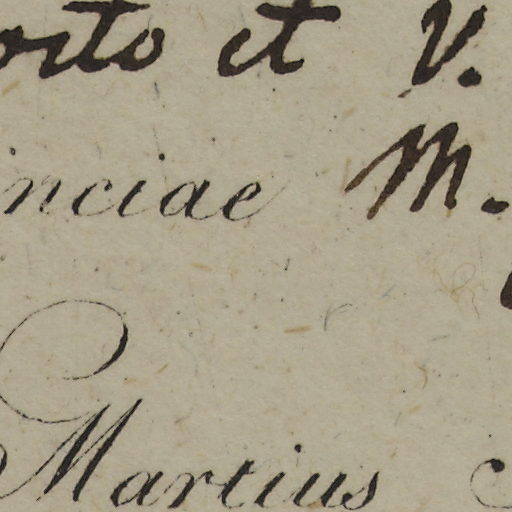 et V.
inciae M.
Martius